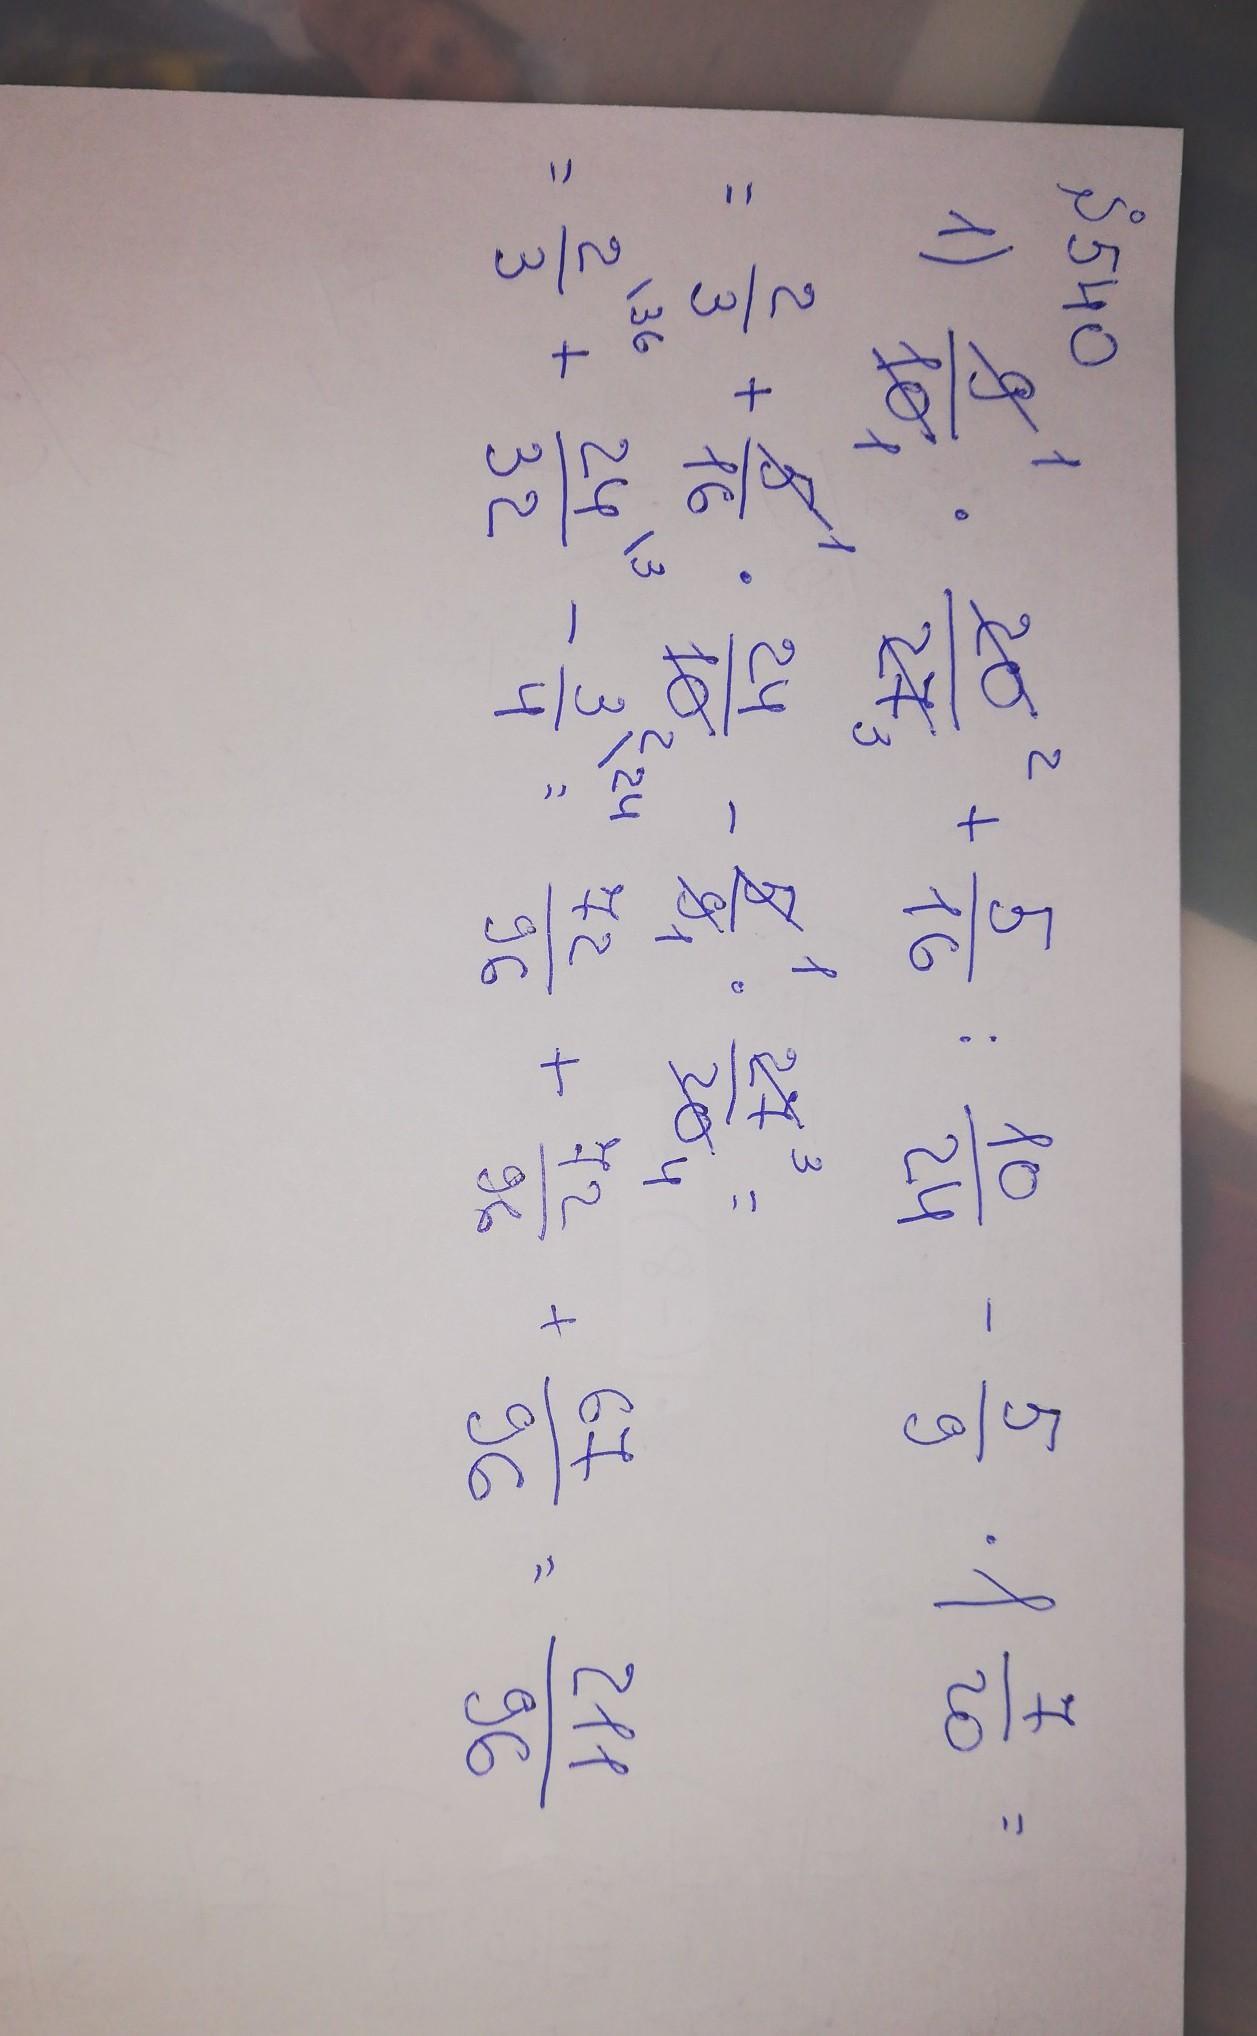 №540
1) 9/10 · 20/27 + 5/16 : 10/24 - 5/9 · 1 7/20 =
= 2/3 + 5/16 · 24/10 - 5/9 · 27/20 =
= 2/3 \36 + 24/32 \3 - 3/4 \24 = 72/96 + 72/96 + 67/96 = 211/96